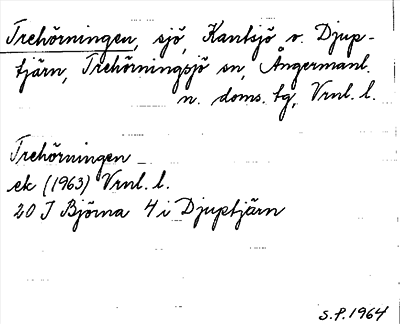 Trehörningen, sjö, Kantsjö o. Djup-
tjärn, Trehörningsjö sn, Ångermanl.
n. doms. tg, Vrnl. l.
Trehörningen
ek (1963) Vrnl. l.
20 J Björna 4 i Djuptjärn
S.P. 1964